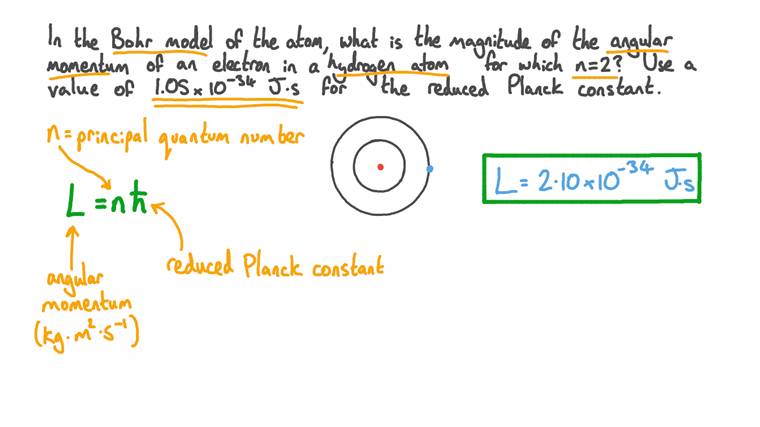 In the Bohr model of the atom, what is the magnitude of the angular
momentum of an electron in a hydrogen atom for which n=2? Use a
value of 1.05 × 10⁻³⁴ J·s for the reduced Planck constant.
n = principal quantum number
L = nħ
reduced Planck constant
angular
momentum
(kg·m²·s⁻¹)
L = 2·10 × 10⁻³⁴ J·s